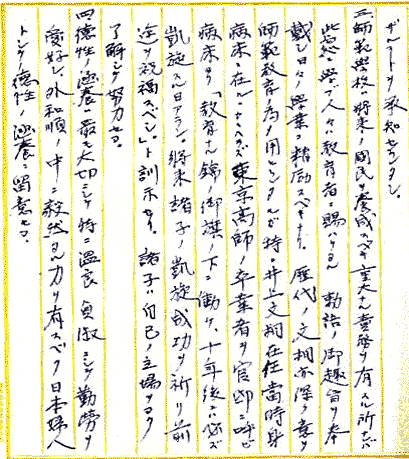 ザルコトヲ承知セラレタシ。
三、師範學校ハ將來ノ國民ヲ養成スベキ重大ナル責務ヲ有スル所ナレバ
此ノ校ニ學ブ人々ハ教育者ニ賜ハリタル 勅語ノ御趣旨ヲ奉
戴シ日々ノ學業ニ精励スベキナリ 歴代ノ文相亦深ク意ヲ
師範教育ノ為ニ用ヒシタルガ特ニ井上文相在任當時身
病床ニ在ルニモカヽハラズ東京高師ノ卒業者ヲ官邸ニ呼ビ
病床ヨリ「教育ナル錦ノ御旗ノ下ニ働ク、十年後ニハ必ズ
凱旋スル日アラン。將來諸子ノ凱旋成功ヲ祈リ前
途ヲ祝福スベシ。」ト訓示セリ。 諸子ハ自己ノ立場ヲヨク
了解シテ努力セヨ
四、德性ノ涵養ハ最モ大切ニシテ特ニ溫良貞淑ニシテ勤勞ヲ
愛好シ、外和順ノ中ニ毅然タル力ヲ有スベク日本婦人
トシテノ德性ノ涵養ニ留意セヨ